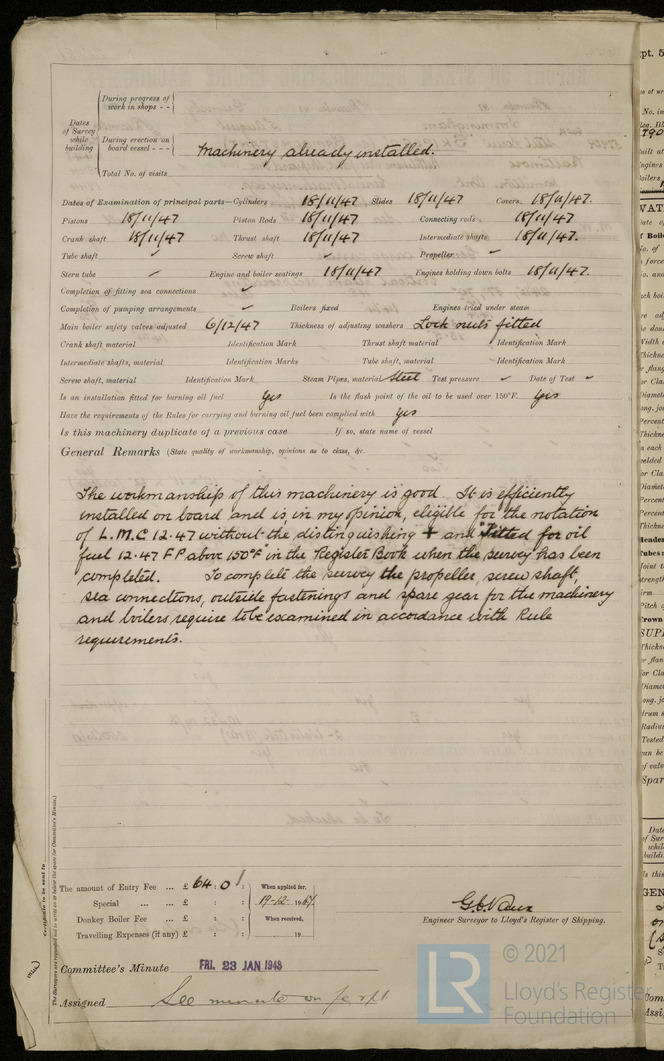 During progress of work in shops - -
Dates of Survey while building
During erection on board vessel - - - Machinery already installed.
Total No. of visits
Dates of Examination of principal parts—Cylinders 18/11/47 Slides 18/11/47 Covers 18/11/47.
Pistons 18/11/47 Piston Rods 18/11/47 Connecting rods 18/11/47
Crank shaft 18/11/47 Thrust shaft 18/11/47 Intermediate shafts 18/11/47.
Tube shaft ✓ Screw shaft ✓ Propeller ✓
Stern tube ✓ Engine and boiler seatings 18/11/47 Engines holding down bolts 18/11/47.
Completion of fitting sea connections ✓
Completion of pumping arrangements ✓ Boilers fixed Engines tried under steam
Main boiler safety valves adjusted 6/12/47 Thickness of adjusting washers Lock nuts fitted
Crank shaft material Identification Mark Thrust shaft material Identification Mark
Intermediate shafts, material Identification Marks Tube shaft, material Identification Mark
Screw shaft, material Identification Mark Steam Pipes, material Steel Test pressure ✓ Date of Test ✓
Is an installation fitted for burning oil fuel Yes Is the flash point of the oil to be used over 150°F. Yes
Have the requirements of the Rules for carrying and burning oil fuel been complied with Yes
Is this machinery duplicate of a previous case If so, state name of vessel
General Remarks (State quality of workmanship, opinions as to class, &c.
The workmanship of this machinery is good. It is efficiently
installed on board and is, in my opinion, eligible for the notation
of L.M.C 12.47 without the distinguishing + and "Fitted for oil
fuel 12.47 F P above 150°F" in the Register Book when the survey has been
completed. To complete the survey the propeller, screw shaft,
sea connections, outside fastenings and spare gear for the machinery
and boilers require to be examined in accordance with Rule
requirements.
The amount of Entry Fee ... £ 64.0 When applied for,
Special ... ... £ : : 19-12- 19
Donkey Boiler Fee £ : : When received,
Travelling Expenses (if any) £ : : 19
Engineer Surveyor to Lloyd's Register of Shipping.
Committee's Minute FRI. 23 JAN 1948
Assigned See minute on
Certificate to be sent to
The Surveyors are requested not to write on or below the space for Committee's Minute.
LR © 2021
Lloyd's Register
Foundation